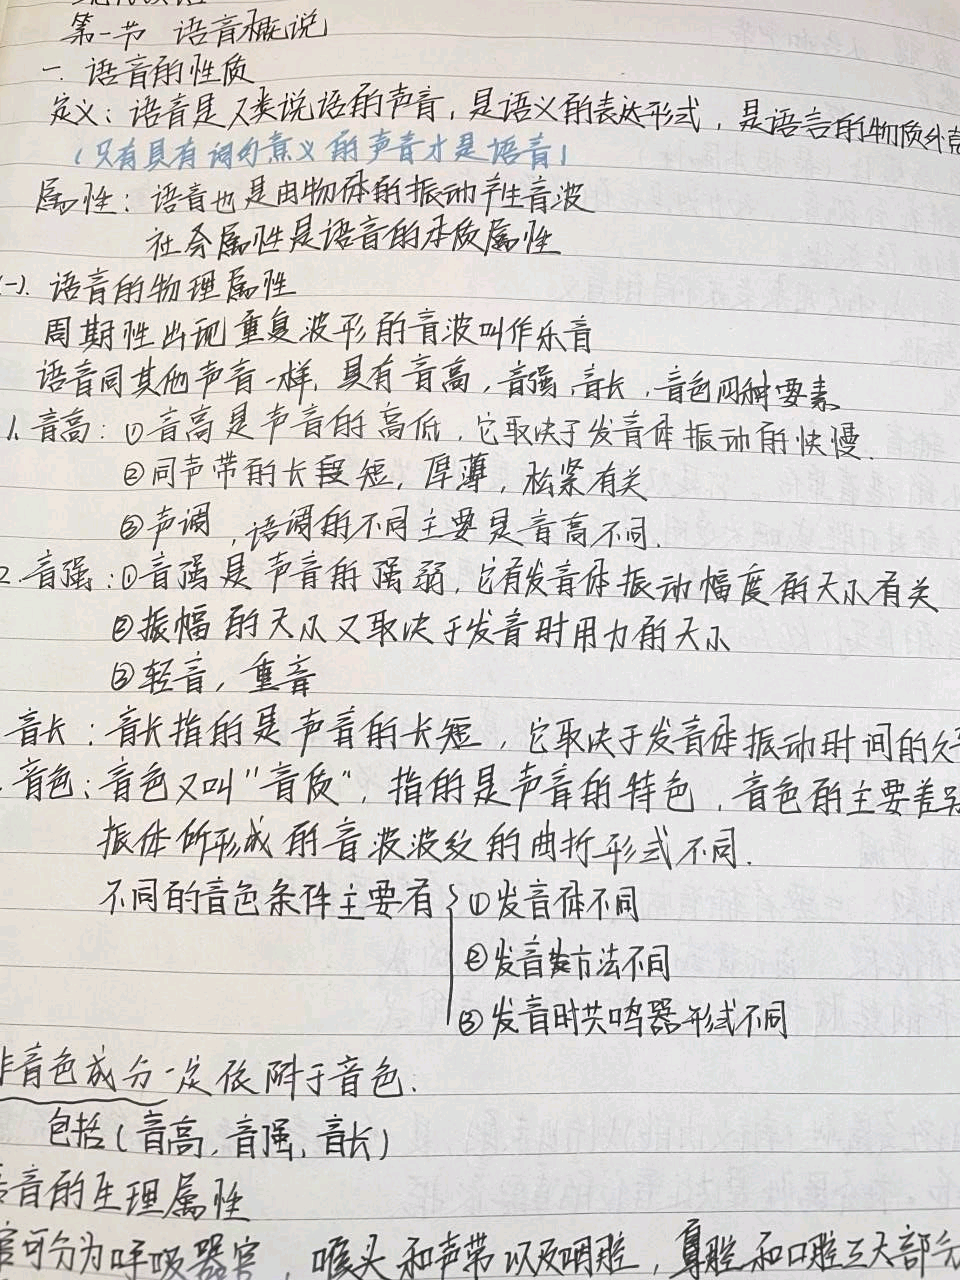 第一节 语音概说
一. 语音的性质
定义：语音是人类说话的声音，是语义的表达形式，是语言的物质外壳
（只有具有词句意义的声音才是语音）
属性：语音也是由物体的振动产生音波
社会属性是语音的本质属性
(一). 语音的物理属性
周期性出现重复波形的音波叫作乐音
语音同其他声音一样，具有音高，音强，音长，音色四种要素
1. 音高：①音高是声音的高低，它取决于发音体振动的快慢.
②同声带的长段短，厚薄，松紧有关
③声调，语调的不同主要是音高不同.
2. 音强：①音强是声音的强弱，它有发音体振动幅度的大小有关
②振幅的大小又取决于发音时用力的大小
③轻音，重音
音长：音长指的是声音的长短，它取决于发音体振动时间的久
音色：音色又叫"音质"，指的是声音的特色，音色的主要差别
振体所形成的音波波纹的曲折形式不同.
不同的音色条件主要有 ①发音体不同
②发音方法不同
③发音时共鸣器形式不同
非音色成分一定依附于音色.
包括(音高，音强，音长)
语音的生理属性
官可分为呼吸器官，喉头和声带以及咽腔，鼻腔和口腔三大部分